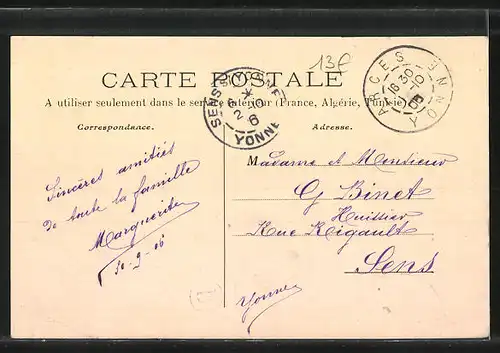 13E
CARTE POSTALE
A utiliser seulement dans le service intérieur (France, Algérie, Tunisie)
Correspondance.
Adresse.
SENS-S-YONNE
2 10
6
YONNE
ARCES
16 30
1 10
06
YONNE
Sincères amitiés
de toute la famille
Marguerite
30-9-06
Madame et Monsieur
G Binet
Huissier
Rue Rigault
Sens
Yonne